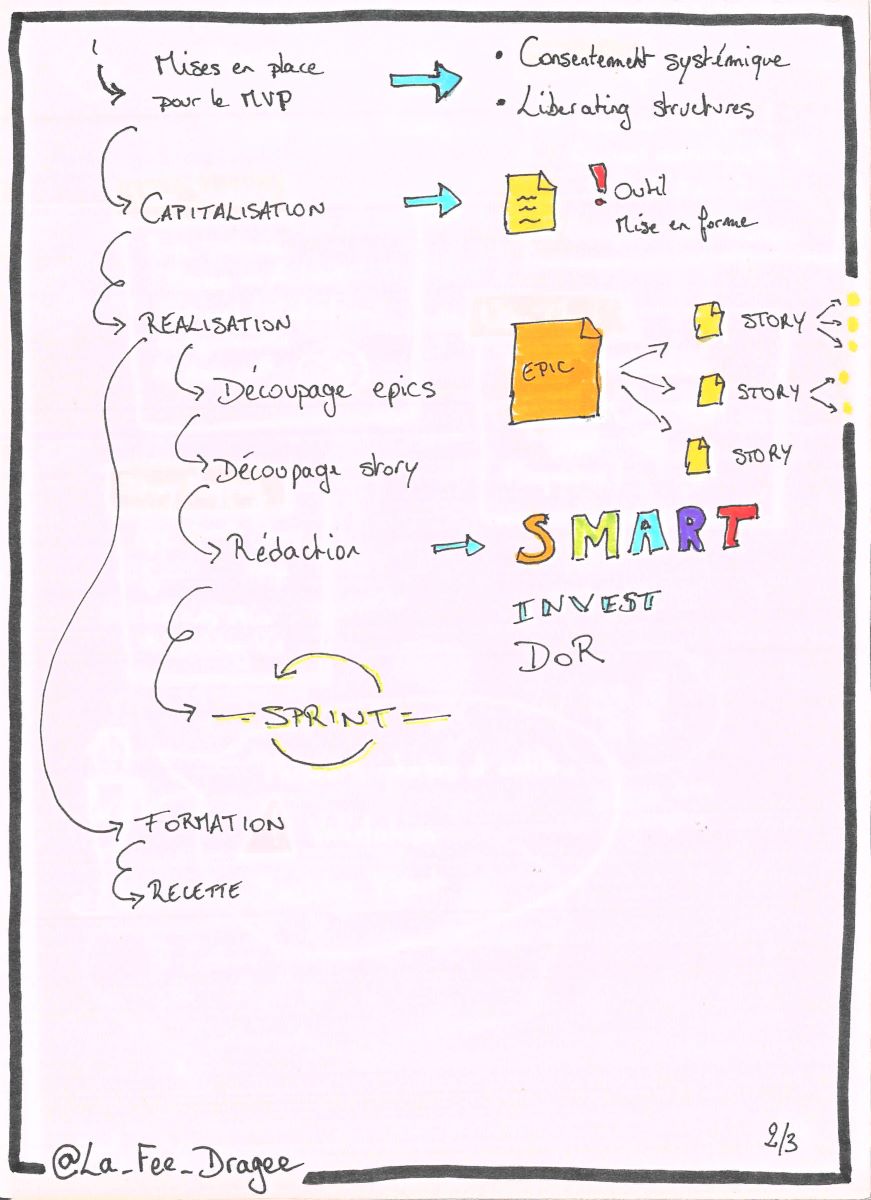 Mises en place
pour le MVP
• Consentement systémique
• Liberating structures
CAPITALISATION
! Outil
Mise en forme
REALISATION
EPIC
STORY
STORY
STORY
Découpage epics
Découpage story
Rédaction
SMART
INVEST
DoR
SPRINT
FORMATION
RECETTE
2/3
@La_Fee_Dragee